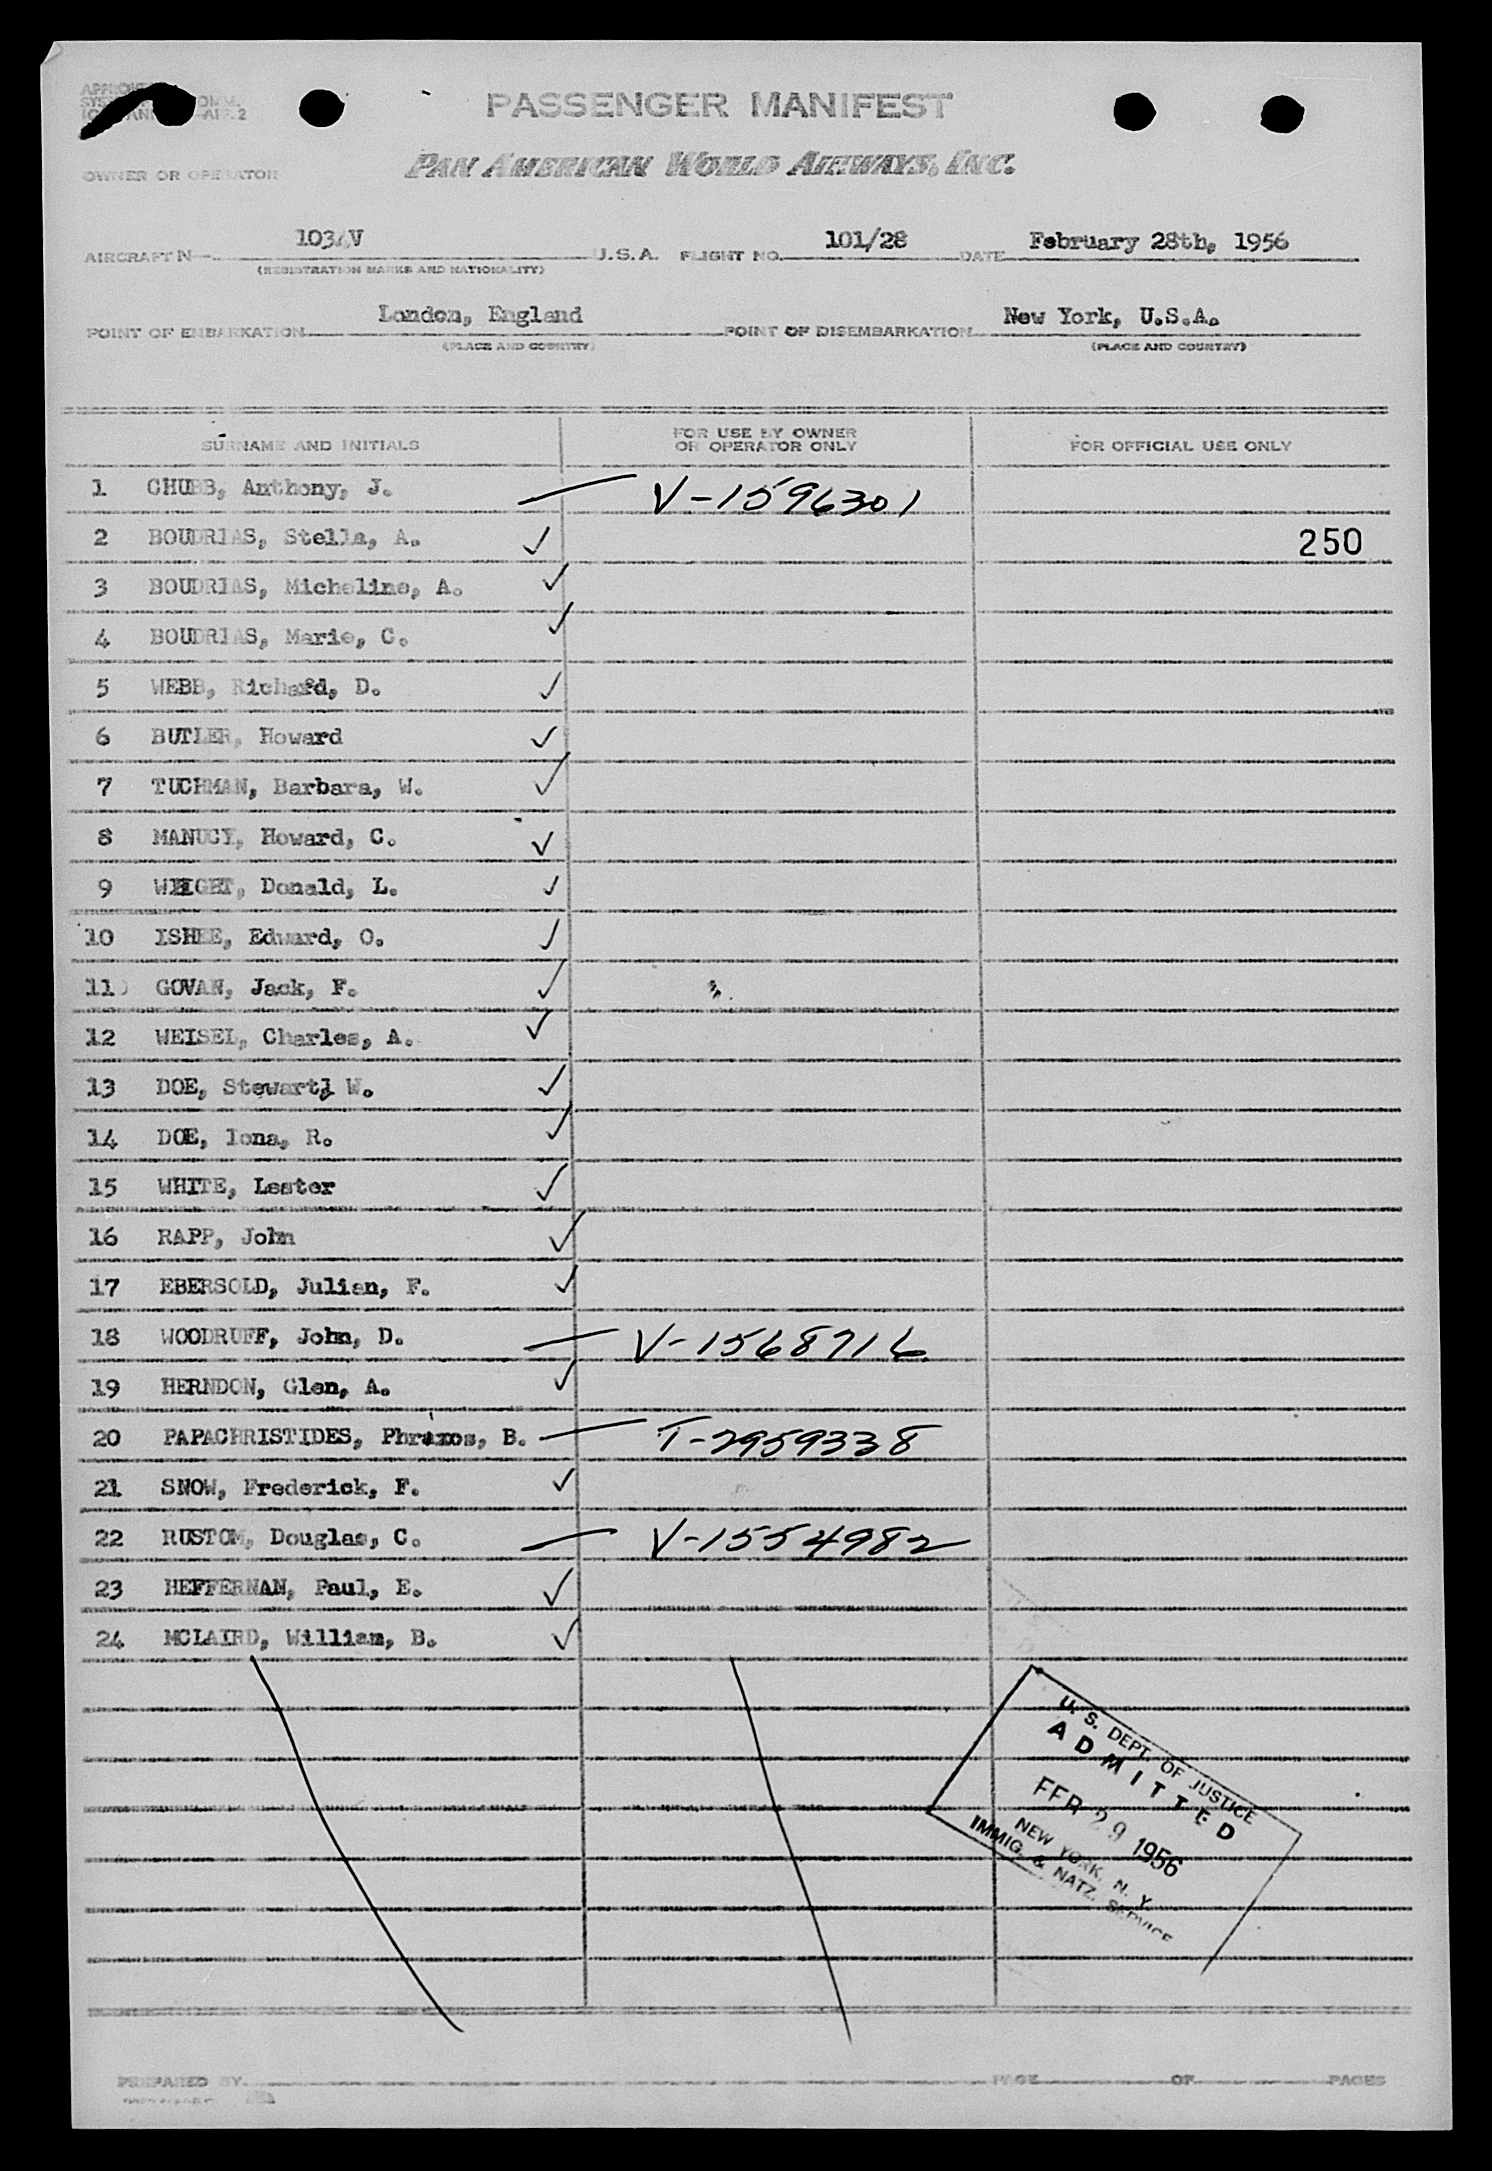 PASSENGER MANIFEST
OWNER OR OPERATOR PAN AMERICAN WORLD AIRWAYS, INC.
AIRCRAFT N 1034V U.S.A. FLIGHT NO. 101/28 DATE February 28th, 1956
(REGISTRATION MARKS AND NATIONALITY)
POINT OF EMBARKATION London, England POINT OF DISEMBARKATION New York, U.S.A.
(PLACE AND COUNTRY) (PLACE AND COUNTRY)
SURNAME AND INITIALS FOR USE BY OWNER OR OPERATOR ONLY FOR OFFICIAL USE ONLY
1 CHUBB, Anthony, J. V-1596301
2 BOUDRIAS, Stella, A. ✓ 250
3 BOUDRIAS, Micheline, A. ✓
4 BOUDRIAS, Marie, C. ✓
5 WEBB, Richard, D. ✓
6 BUTLER, Howard ✓
7 TUCHMAN, Barbara, W. ✓
8 MANUCY, Howard, C. ✓
9 WRIGHT, Donald, L. ✓
10 ISHEE, Edward, O. ✓
11 GOVAN, Jack, F. ✓
12 WEISEL, Charles, A. ✓
13 DOE, Stewart, W. ✓
14 DOE, Iona, R. ✓
15 WHITE, Lester ✓
16 RAPP, John ✓
17 EBERSOLD, Julian, F. ✓
18 WOODRUFF, John, D. V-1568716
19 HERNDON, Glen, A. ✓
20 PAPACHRISTIDES, Phrixos, B. T-2959338
21 SNOW, Frederick, F. ✓
22 RUSTOM, Douglas, C. V-1554982
23 HEFFERNAN, Paul, E. ✓
24 MCLAIRD, William, B. ✓
U. S. DEPT. OF JUSTICE
ADMITTED
FEB 29 1956
NEW YORK, N. Y.
IMMIG. & NATZ. SERVICE
PREPARED BY PAGE OF PAGES